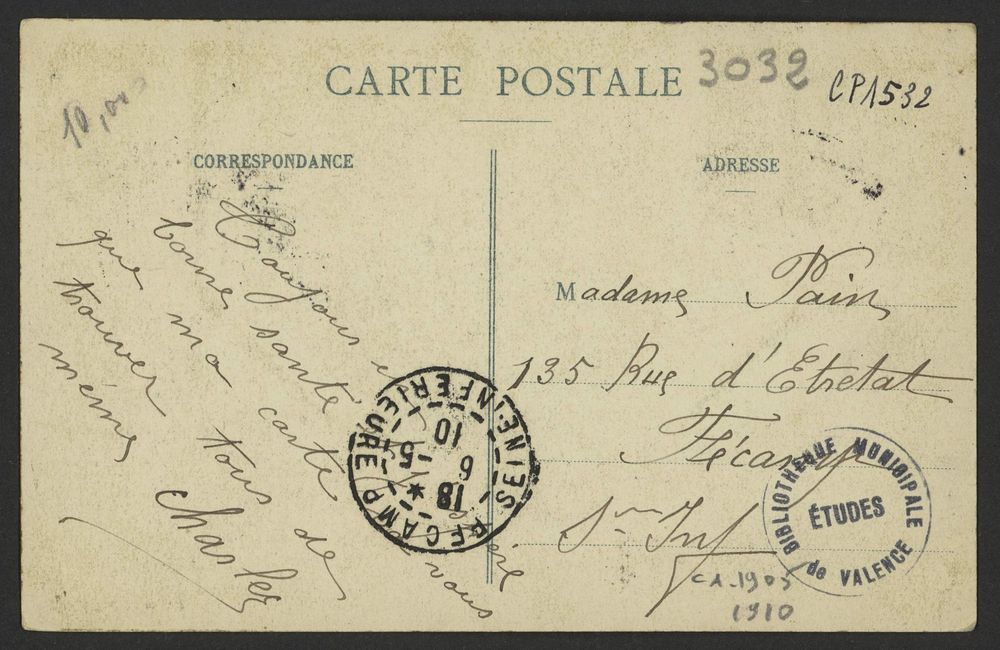 CARTE POSTALE
3032
CP1532
10,000
CORRESPONDANCE
ADRESSE
Toujours en
bonne santé
que ma carte vous
trouver tous de
même
Charles
FECAMP
SEINE-INFERIEURE
18 *
6 - 5
10
Madame Pain
135 Rue d'Etretat
Fécamp
Sne Inf
BIBLIOTHEQUE MUNICIPALE
ÉTUDES
de VALENCE
CA-1905
1910